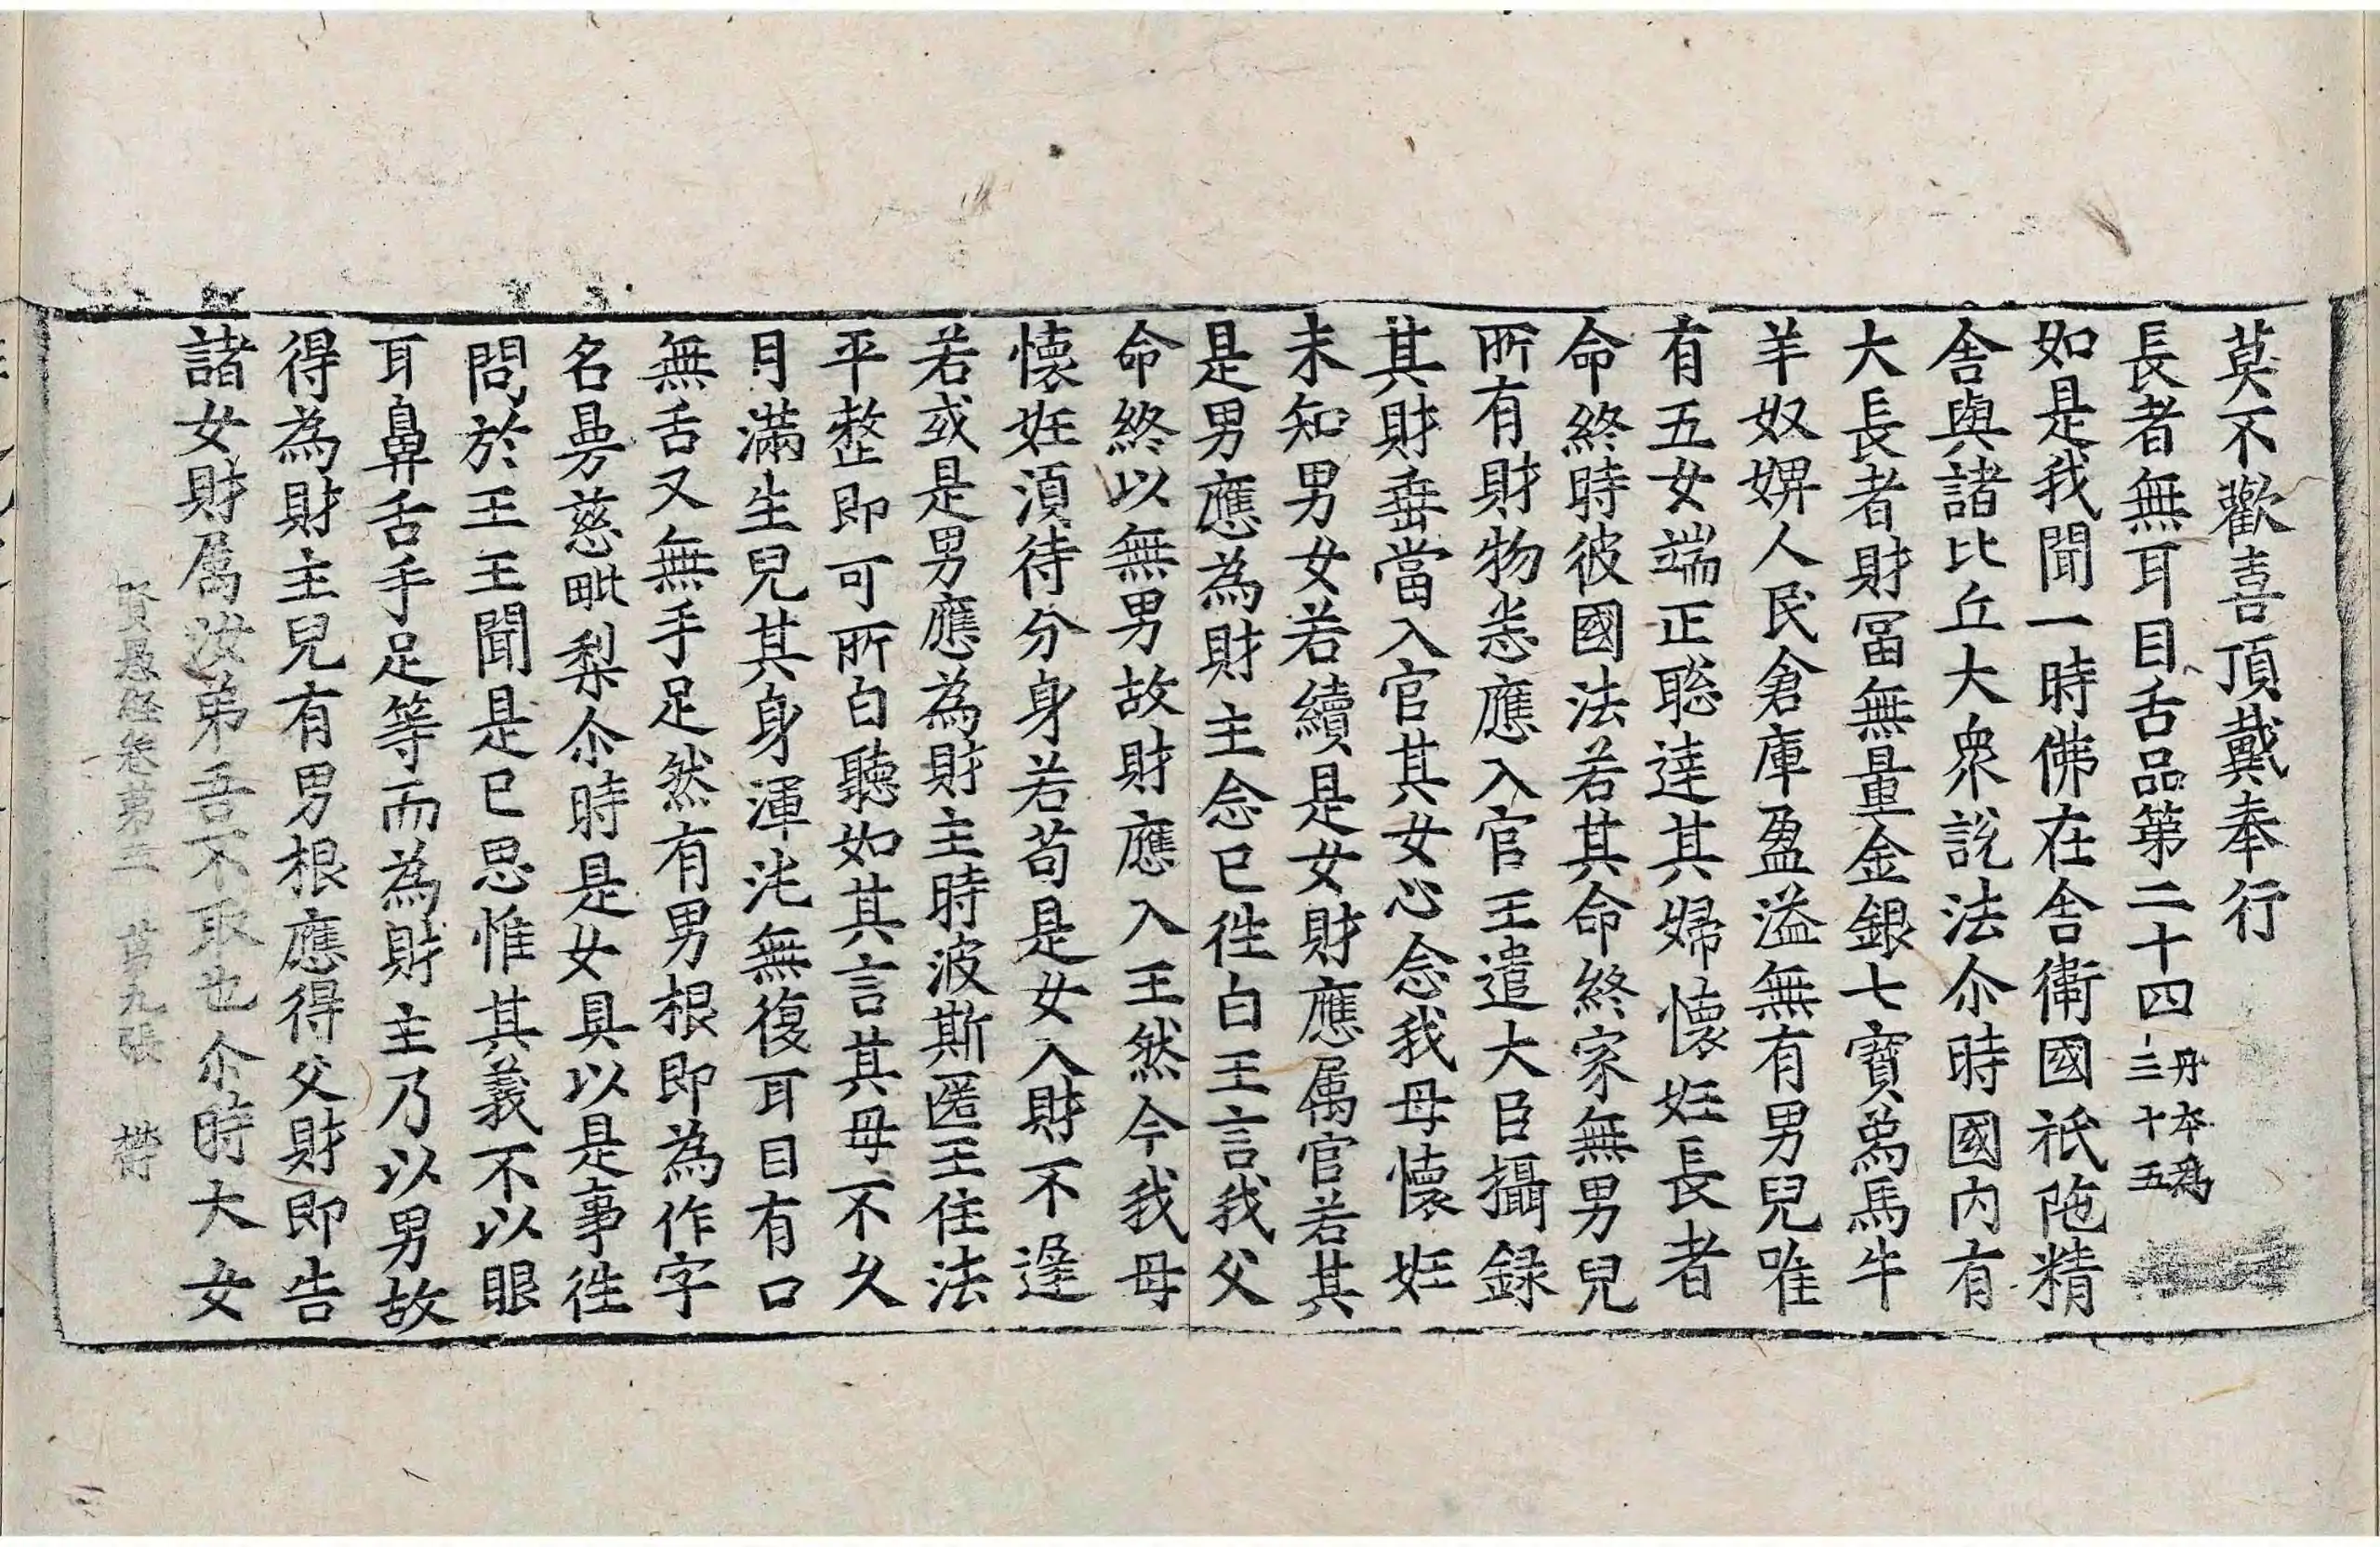 莫不歡喜頂戴奉行
長者無耳目舌品第二十四 丹本為三十五
如是我聞一時佛在舍衛國祇陁精
舍與諸比丘大衆說法尒時國內有
大長者財冨無量金銀七寶爲馬牛
羊奴婢人民倉庫盈溢無有男兒唯
有五女端正聡達其婦懷妊長者
命終時彼國法若其命終家無男兒
所有財物悉應入官王遣大臣攝録
其財垂當入官其女心念我母懷妊
未知男女若續是女財應属官若其
是男應為財主念已徃白王言我父
命終以無男故財應入王然今我母
懷妊湏待分身若苟是女入財不遟
若或是男應為財主時波斯匿王住法
平整即可所白聽如其言其母不久
月滿生兒其身渾沌無復耳目有口
無舌又無手足然有男根即為作字
名曼慈毗梨尒時是女具以是事徃
問於王王聞是已思惟其義不以眼
耳鼻舌手足等而為財主乃以男故
得為財主兒有男根應得父財即告
諸女財属汝弟吾不取也尒時大女
賢愚経卷第五 苐九張